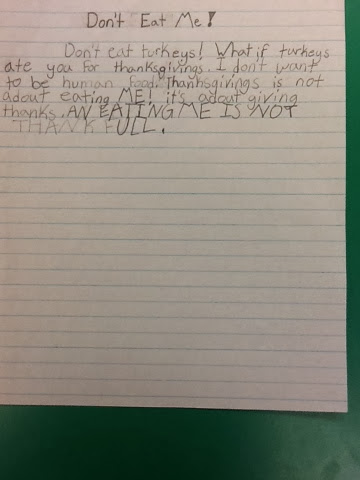 Don't Eat Me!
Don't eat turkeys! What if turkeys
ate you for thanksgivings. I don't want
to be human food. Thanhsgivings is not
adout eating ME! it's adout giving
thanks. AN EATING ME IS NOT
THANK FULL.